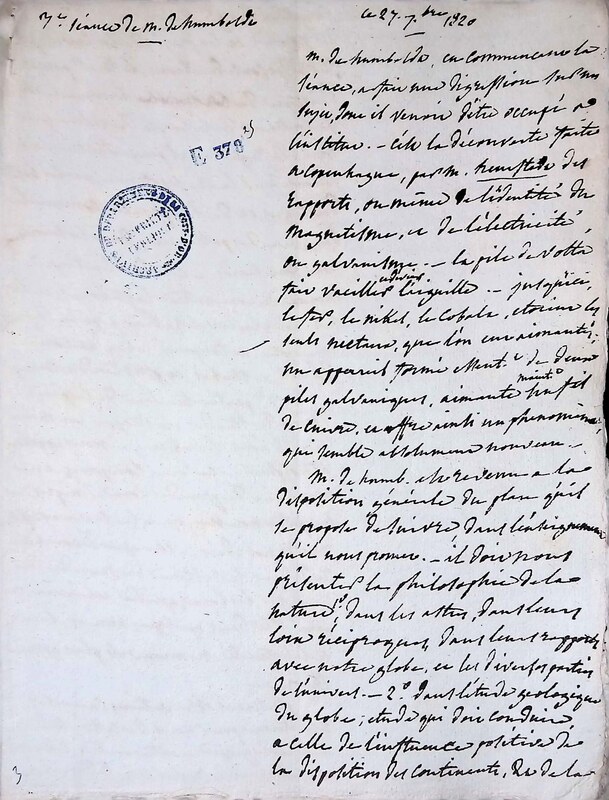 3e Séance de M. de humboldt
ce 27. 7.bre 1820
E 378 25
M. de humboldt, en commencant la
séance, a fait une digression sur un
sujet, dont il venoit d'être occupé a
l'institut. - C'est la découverte faite
a Copenhague, par M. des
rapports, ou même de l'identité du
magnetisme, et de l'électricité,
ou galvanisme. - la pile de volta
fait vaciller l'éguille - jusqu'ici,
le fer, le nikel, le Cobalt, étoient les
seuls métaux, que l'on eut aimantés;
un appareil formé de deux
piles galvaniques, aimante un fil
de Cuivre, et offre ainsi un phenomène
qui semble absolument nouveau. -
M. de humb. est revenu a la
disposition générale du plan qu'il
se propose de suivre dans l'enseignement
qu'il nous promet. - il doit nous
présenter la philosophie de la
nature 1o, dans les astres, dans leurs
loix réciproques, dans leurs rapports
avec notre globe, et les diverses parties
de l'univers - 2o dans l'étude geologique
du globe; etude qui doit conduire
a celle de l'influence positive de
la disposition des continents, & de la
3